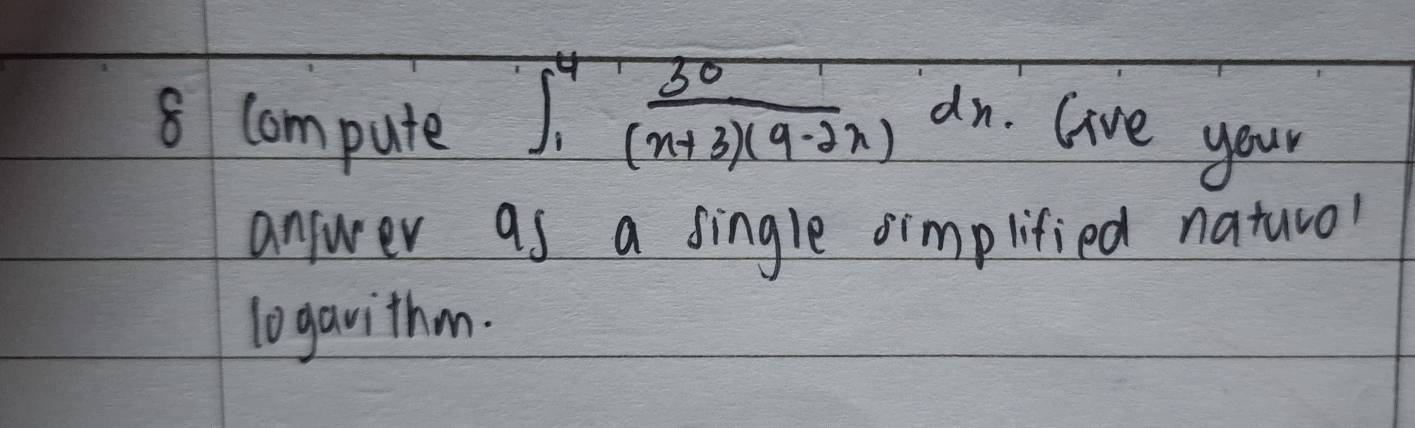 8 Compute ∫₁⁴ 30/((x+3)(9-2x)) dx. Give your
answer as a single simplified natural
logarithm.